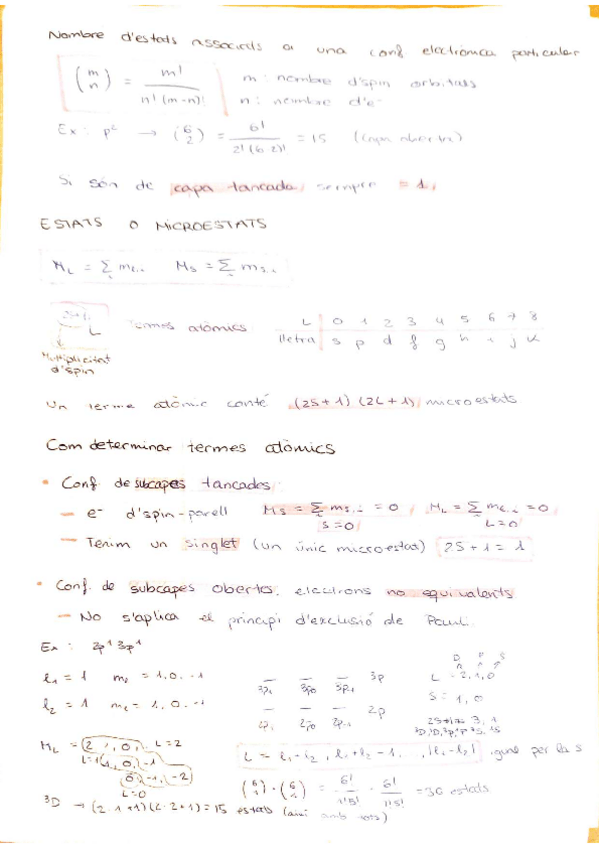 Nombre d'estats associats a una conf electrònica particular
(m n) = m! / n! (m-n)!   m: nombre d'spin orbitals
n: nombre d'e-
Ex: p² → (6 2) = 6! / 2! (6 2)! = 15
Si són de capa tancada, sempre = 1,
ESTATS O MICROESTATS
M_L = Σ m_l,i   M_S = Σ m_s,i
2S+1 L   Termes atòmics   L 0 1 2 3 4 5 6 7 8
lletra s p d f g h i j k
Multiplicitat d'spin
Un terme atòmic conté (2S+1)(2L+1) microestats
Com determinar termes atòmics
• Conf de subcapes tancades:
– e- d'spin-parell   M_S = Σ m_s,i = 0 / M_L = Σ m_l,i = 0
S=0   L=0
– Tenim un singlet (un únic microestat) 2S+1=1
• Conf. de subcapes obertes, electrons no equivalents
– No s'aplica el principi d'exclusió de Pauli.
Ex: 2p¹ 3p¹   D P S
l₁ = 1   m_l = 1, 0, -1   3p₁ 3p₀ 3p₋₁ 3p   L = 2, 1, 0
l₂ = 1   m_l = 1, 0, -1   2p₁ 2p₀ 2p₋₁ 2p   S = 1, 0
2S+1 = 3, 1
M_L = 2, 1, 0, L=2
L=1 1, 0, -1   igual per la S
0, -1, -2
L=0   (6 1) · (6 1) = 6! / 1!5! · 6! / 1!5! = 36 estats
³D → (2·1+1)(2·2+1) = 15 estats (així amb tots)